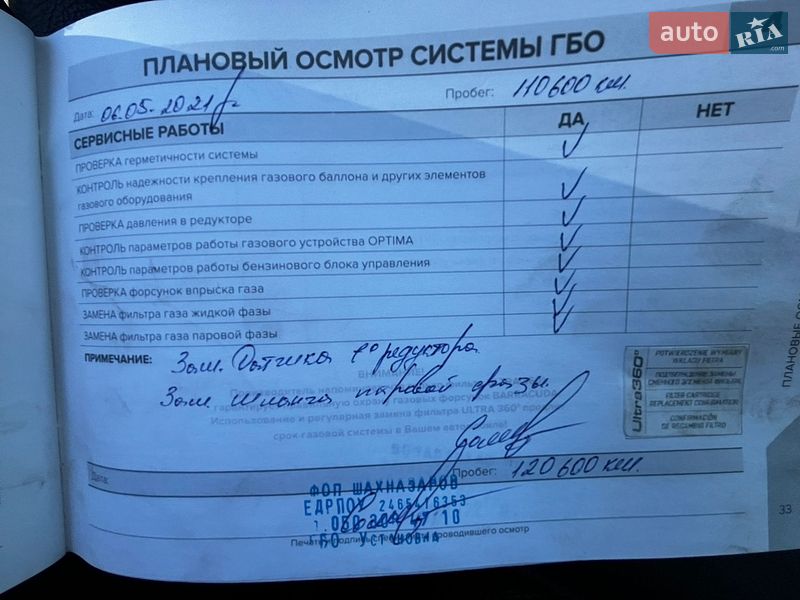 auto RIA.com
ПЛАНОВЫЙ ОСМОТР СИСТЕМЫ ГБО
Дата: 06.05.2021 г. Пробег: 110600 км.
СЕРВИСНЫЕ РАБОТЫ ДА НЕТ
ПРОВЕРКА герметичности системы
КОНТРОЛЬ надежности крепления газового баллона и других элементов
газового оборудования
ПРОВЕРКА давления в редукторе
КОНТРОЛЬ параметров работы газового устройства OPTIMA
КОНТРОЛЬ параметров работы бензинового блока управления
ПРОВЕРКА форсунок впрыска газа
ЗАМЕНА фильтра газа жидкой фазы
ЗАМЕНА фильтра газа паровой фазы
ПРИМЕЧАНИЕ: Зам. Датчика t° редуктора
ВНИМАНИЕ!
Зам. шланга паровой фазы.
гарантирует охрану газовых форсунок BARRACUDA
Использование и регулярная замена фильтра ULTRA 360°
срок газовой системы в Вашем
Ultra360°
POTWIERDZENIE WYMIANY
WKŁADU FILTRA
ПОДТВЕРЖДЕНИЕ ЗАМЕНЫ
СМЕННОГО ЭЛЕМЕНТА ФИЛЬТРА
FILTER CARTRIDGE
REPLACEMENT CONFIRMATION
CONFIRMACIÓN
DE RECAMBIO FILTRO
Дата: Пробег: 120600 км.
ФОП ШАХНАЗАРОВ
ЕДРПОУ 2465416353
ГБО Установка
проводившего осмотр
33